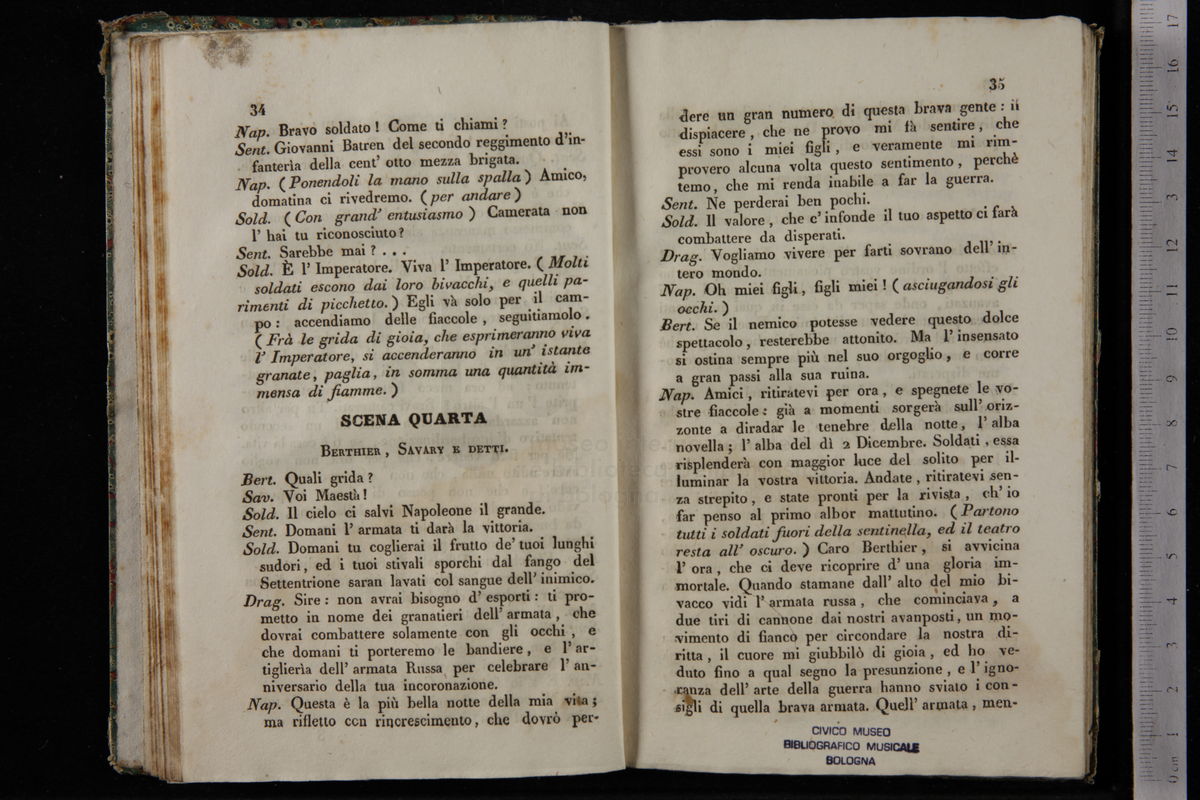 34
Nap. Bravo soldato ! Come ti chiami ?
Sent. Giovanni Batren del secondo reggimento d'in-
fanterìa della cent' otto mezza brigata.
Nap. ( Ponendoli la mano sulla spalla ) Amico,
domatina ci rivedremo. ( per andare )
Sold. ( Con grand' entusiasmo ) Camerata non
l' hai tu riconosciuto ?
Sent. Sarebbe mai ? . . .
Sold. È l' Imperatore. Viva l' Imperatore. ( Molti
soldati escono dai loro bivacchi, e quelli pa-
rimenti di picchetto. ) Egli và solo per il cam-
po : accendiamo delle fiaccole , seguitiamolo .
( Frà le grida di gioia, che esprimeranno viva
l' Imperatore, si accenderanno in un' istante
granate, paglia, in somma una quantità im-
mensa di fiamme. )
SCENA QUARTA
BERTHIER , SAVARY E DETTI.
Bert. Quali grida ?
Sav. Voi Maestà !
Sold. Il cielo ci salvi Napoleone il grande.
Sent. Domani l' armata ti darà la vittoria.
Sold. Domani tu coglierai il frutto de' tuoi lunghi
sudori, ed i tuoi stivali sporchi dal fango del
Settentrione saran lavati col sangue dell' inimico.
Drag. Sire : non avrai bisogno d' esporti : ti pro-
metto in nome dei granatieri dell' armata , che
dovrai combattere solamente con gli occhi , e
che domani ti porteremo le bandiere , e l' ar-
tiglierìa dell' armata Russa per celebrare l' an-
niversario della tua incoronazione.
Nap. Questa è la più bella notte della mia vita ;
ma rifletto con rincrescimento, che dovrò per-
35
dere un gran numero di questa brava gente : il
dispiacere , che ne provo mi fà sentire , che
essi sono i miei figli , e veramente mi rim-
provero alcuna volta questo sentimento , perchè
temo , che mi renda inabile a far la guerra.
Sent. Ne perderai ben pochi.
Sold. Il valore , che c' infonde il tuo aspetto ci farà
combattere da disperati.
Drag. Vogliamo vivere per farti sovrano dell' in-
tero mondo.
Nap. Oh miei figli , figli miei ! ( asciugandosi gli
occhi. )
Bert. Se il nemico potesse vedere questo dolce
spettacolo , resterebbe attonito. Ma l' insensato
si ostina sempre più nel suo orgoglio , e corre
a gran passi alla sua ruina.
Nap. Amici , ritiratevi per ora , e spegnete le vo-
stre fiaccole : già a momenti sorgerà sull' oriz-
zonte a diradar le tenebre della notte , l' alba
novella ; l' alba del dì 2 Dicembre. Soldati , essa
risplenderà con maggior luce del solito per il-
luminar la vostra vittoria. Andate , ritiratevi sen-
za strepito , e state pronti per la rivista , ch' io
far penso al primo albor mattutino. ( Partono
tutti i soldati fuori della sentinella, ed il teatro
resta all' oscuro. ) Caro Berthier , si avvicina
l' ora , che ci deve ricoprire d' una gloria im-
mortale. Quando stamane dall' alto del mio bi-
vacco vidi l' armata russa , che cominciava , a
due tiri di cannone dai nostri avanposti , un mo-
vimento di fianco per circondare la nostra di-
ritta , il cuore mi giubbilò di gioia , ed ho ve-
duto fino a qual segno la presunzione , e l' igno-
ranza dell' arte della guerra hanno sviato i con-
sigli di quella brava armata. Quell' armata , men-
CIVICO MUSEO
BIBLIOGRAFICO MUSICALE
BOLOGNA